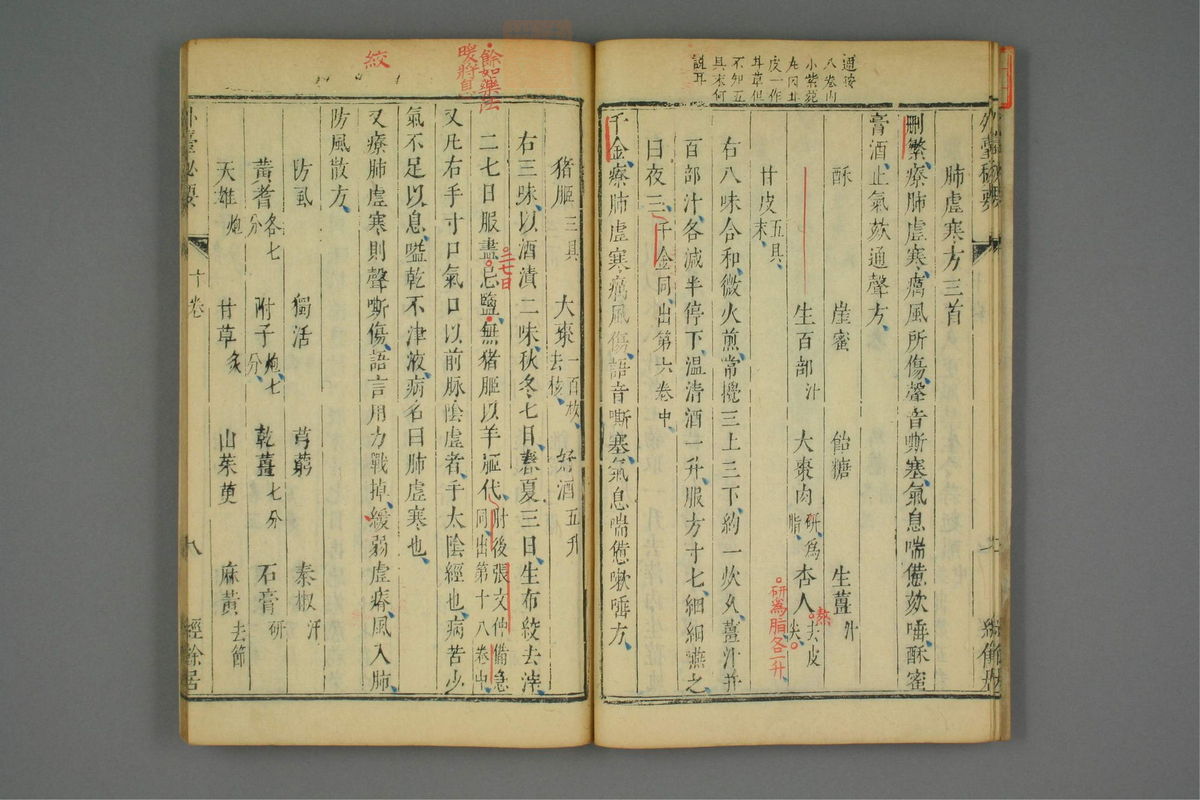 外臺秘要
肺虛寒方三首
刪繁療肺虛寒癘風所傷聲音嘶塞氣息喘憊欬唾酥蜜
膏酒止氣欬通聲方
酥 崖蜜 飴糖 生薑汁
生百部汁 大棗肉研為脂 杏人去皮尖
熬
研為脂各一升
甘皮五具末
右八味合和微火煎常攪三上三下約一炊久薑汁并
百部汁各減半停下溫清酒一升服方寸七細細嚥之
日夜三千金同出第六卷中
千金療肺虛寒癘風傷語音嘶塞氣息喘憊嗽唾方
餘如藥法
暖將息
絞
猪䐈三具 大棗一百枚去核 好酒五升
右三味以酒漬二味秋冬七日春夏三日生布絞去滓
二七日服盡忌鹽無猪䐈以羊䐈代肘後張文仲備急同出第十八卷中
三七日
又凡右手寸口氣口以前脉陰虛者手太陰經也病苦少
氣不足以息嗌乾不津液病名曰肺虛寒也
又療肺虛寒則聲嘶傷語言用力戰掉緩弱虛瘠風入肺
防風散方
防風 獨活 芎藭 秦椒汗
黃耆各七分 附子炮七分 乾薑七分 石膏研
天雄炮 甘草炙 山茱萸 麻黃去節
外臺秘要 十卷 八 經餘居